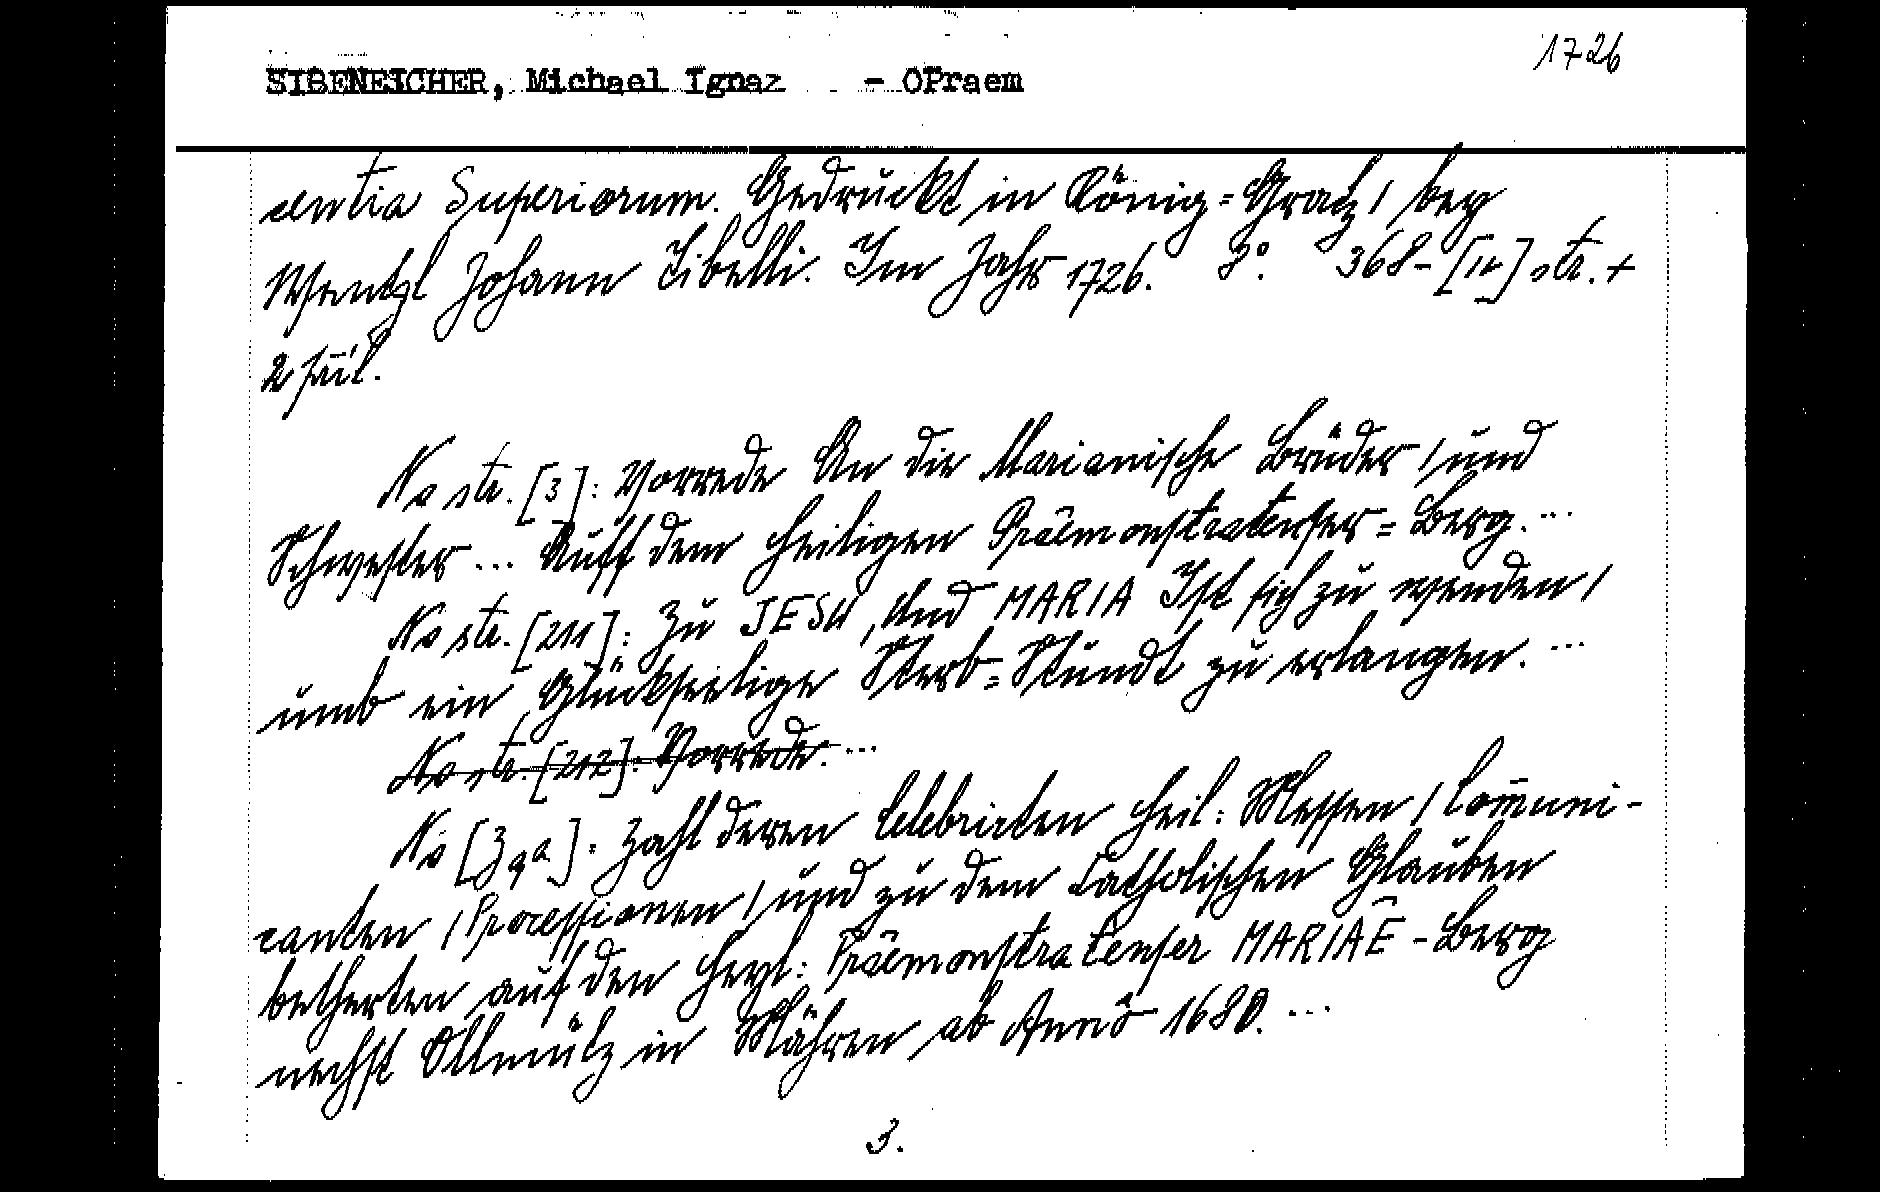 SIBENEICHER, Michael Ignaz - OPraem
1726
centia Superiorum. Gedruckt in König=Gratz / bey
Wentzl Johann Tibelli. Im Jahr 1726. 8°. 368-[12] str. +
2 příl.
Na str. [3]: Vorrede An die Marianische Brüder / und
Schwester ... Auff dem Heiligen Praemonstratenser=Berg. ...
Na str. [211]: Zu JESU, Und MARIA Ist sich zu wenden /
umb ein Glückseelige Sterb=Stundt zu erlangen. ...
Na str. [212]: Vorrede. ...
Na [Z4a]: Zahl deren Celebrirten Heil: Messen / Com̄uni-
canten / Processionen / und zu dem Catholischen Glauben
bekherten auf den Heyl: Praemonstratenser MARIAE-Berg
nechst Ollmütz in Mähren ab Anno 1680. ...
3.